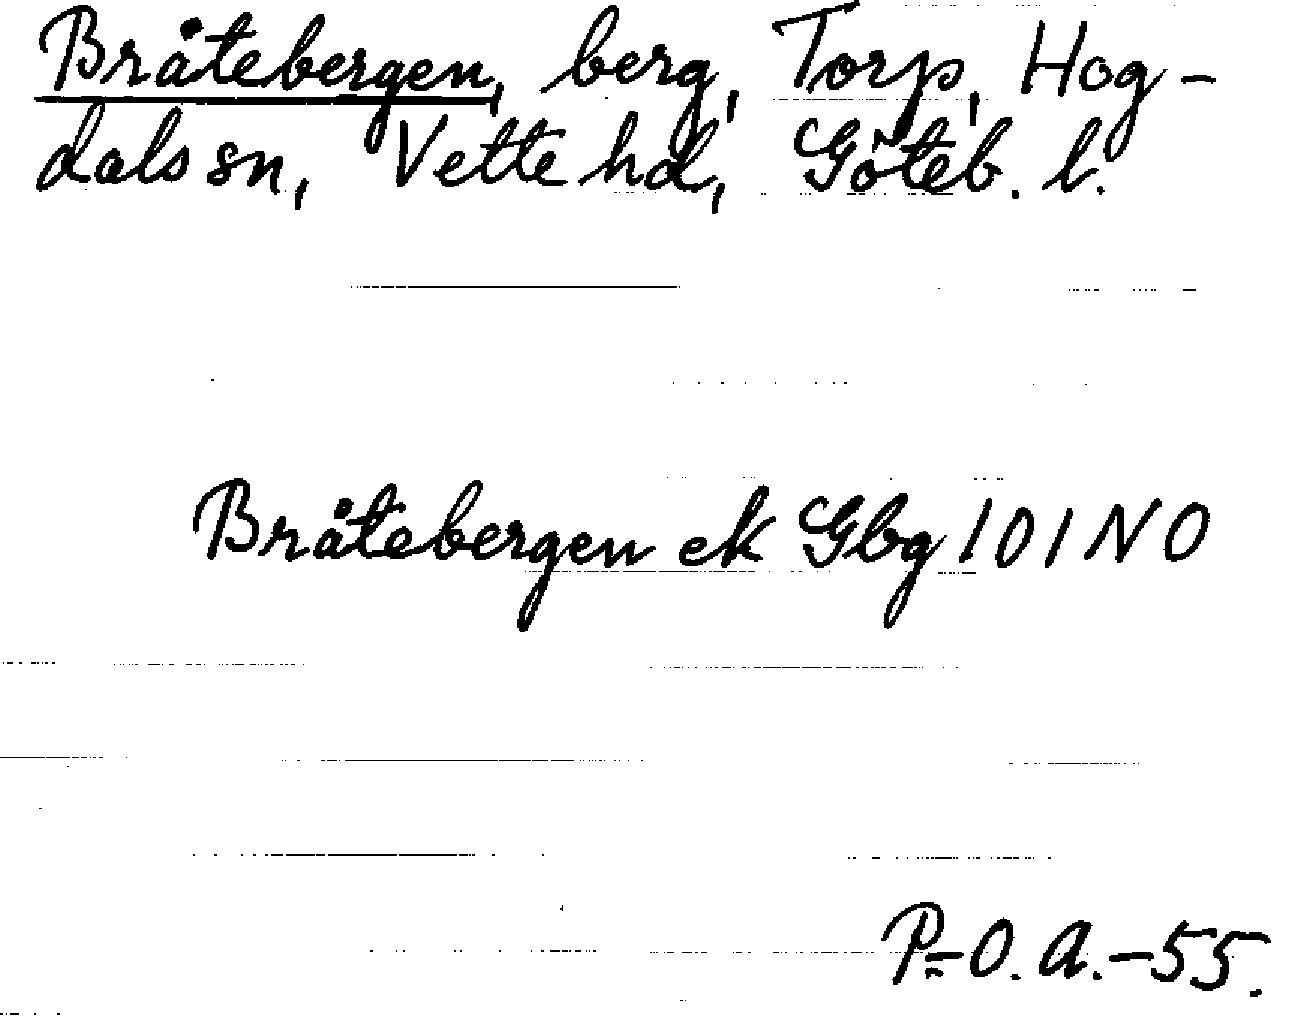 Bråtebergen, berg, Torp, Hog-
dals sn, Vette hd, Göteb. l.
Bråtebergen ek Gbg 101 NO
P.-O. A. -55.